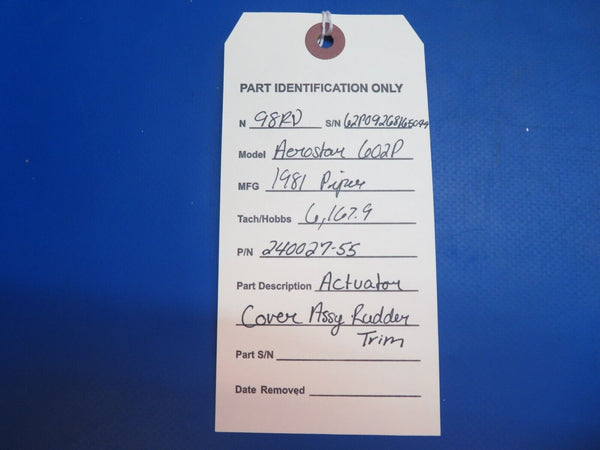 PART IDENTIFICATION ONLY
N 98RD S/N 62P09268165099
Model Aerostar 602P
MFG 1981 Piper
Tach/Hobbs 6,167.9
P/N 240027-55
Part Description Actuator
Cover Assy Rudder
Trim
Part S/N
Date Removed